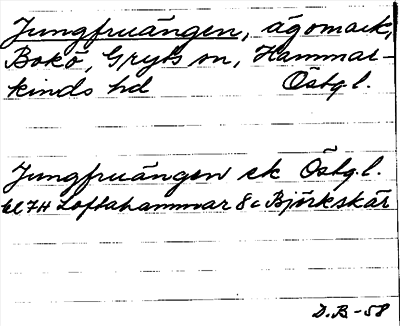 Jungfruängen, ägomark,
Bokö, Gryts sn, Hammar-
kinds hd Östg.l.
Jungfruängen ek Östg.l.
bl 7H Loftahammar 8c Björkskär
D.B-58